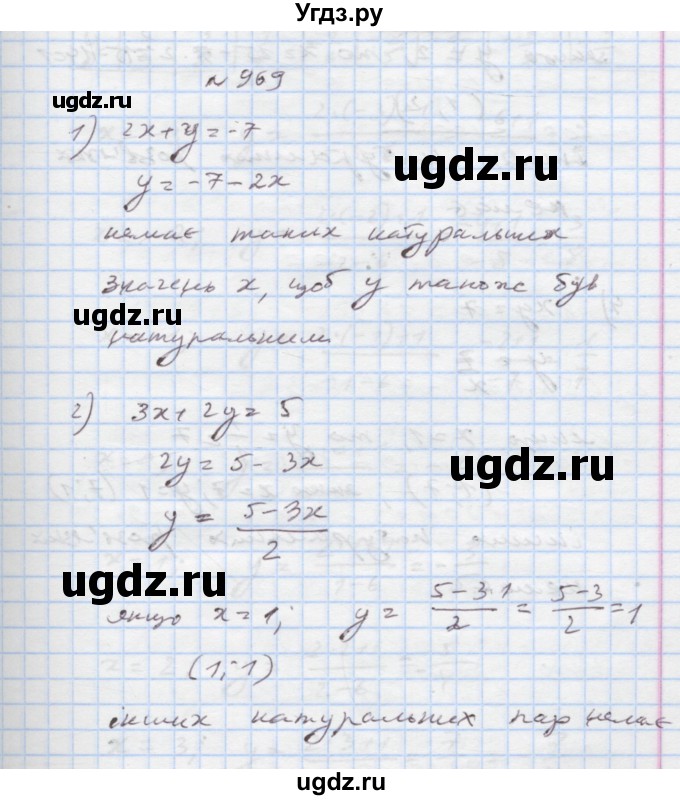 Угдз.ру
№ 969
ugdz.ru
1) 2x + y = -7
y = -7 - 2x
ugdz.ru
немає таких натуральних
значень x, щоб y також був
ugdz.ru
натуральним
2) 3x + 2y = 5
2y = 5 - 3x
ugdz.ru
y = \frac{5-3x}{2}
ugdz.ru
якщо x = 1; y = \frac{5-3·1}{2} = \frac{5-3}{2} = 1
(1; 1)
інших натуральних пар немає
ugdz.ru